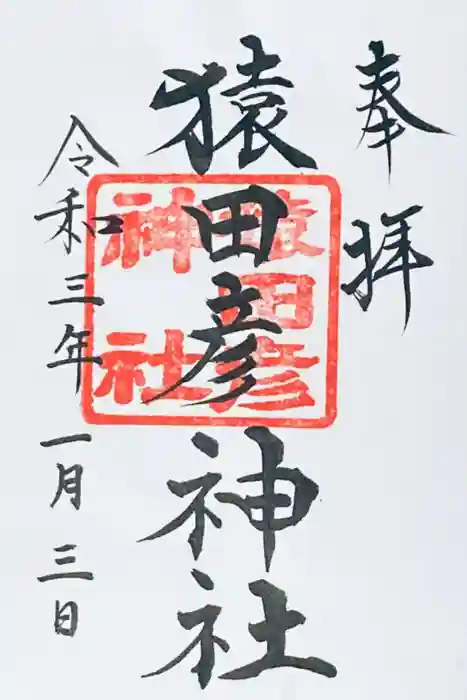 奉拝
猿田彦神社
猿田彦
神社
令和三年一月三日